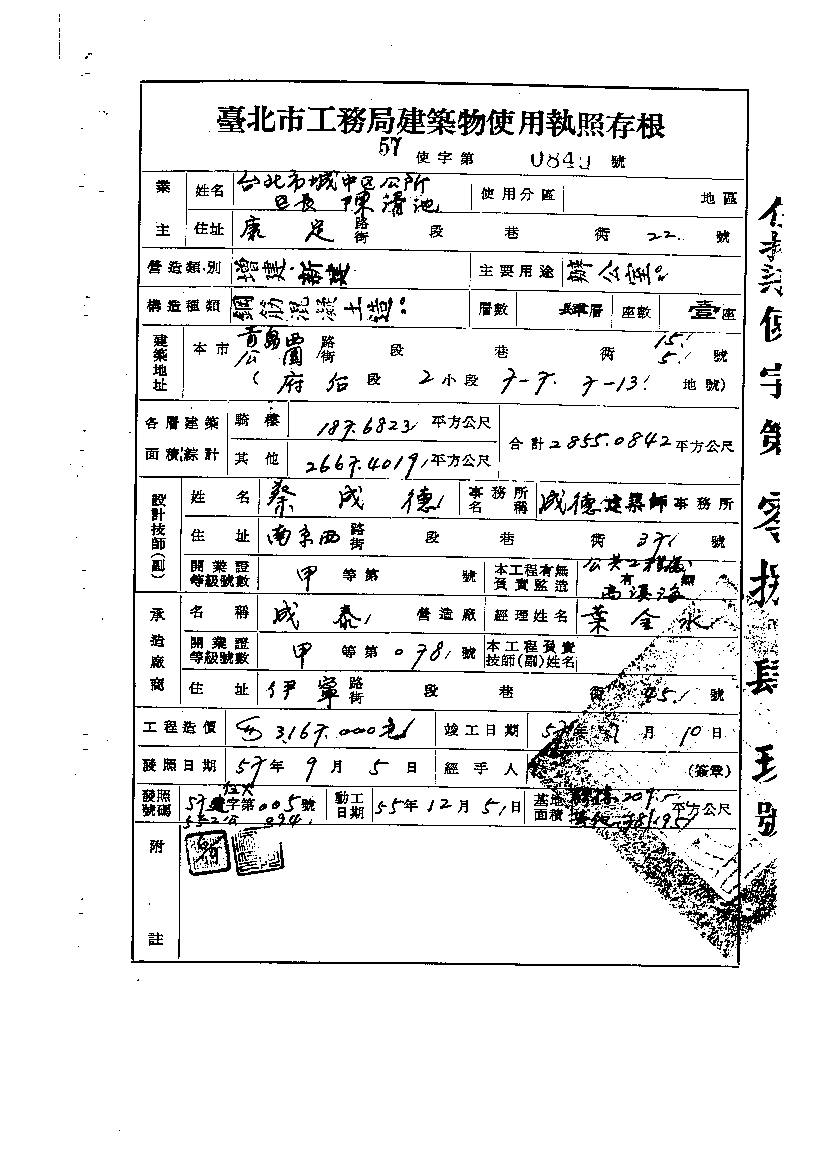 臺北市工務局建築物使用執照存根
57 使字第 0840 號
業主 姓名 台北市城中区公所 区長 陳清池 使用分區 地區
住址 康定 路街 段 巷 衖 22 號
營造類別 增建.新建 主要用途 辦公室
構造種類 鋼筋混凝土造 層數 層 座數 壹座
建築地址 本市 青島西 公園 路街 段 巷 衖 15 5 號
( 府后段 2小段 7-7. 7-13 地號)
各層建築面積綜計 騎樓 187.6823 平方公尺 合計 2855.0842 平方公尺
其他 2667.4019 平方公尺
設計技師(副) 姓名 蔡成德 事務所名稱 成德建築師事務所
住址 南京西 路街 段 巷 衖 37 號
開業證等級號數 甲 等第 號 本工程有無負責監造 公共工程局 有 馮溪海
承造廠商 名稱 成泰 營造廠 經理姓名 葉全水
開業證等級號數 甲 等第 078 號 本工程負責技師(副)姓名
住址 伊寧 路街 段 巷 衖 45 號
工程造價 3,167,000元 竣工日期 57年 月 10日
發照日期 57年 9月 5日 經手人 (簽章)
發照號碼 57建字第005號 動工日期 55年12月5日 基地面積 209 平方公尺
附註
使字第零捌肆 號